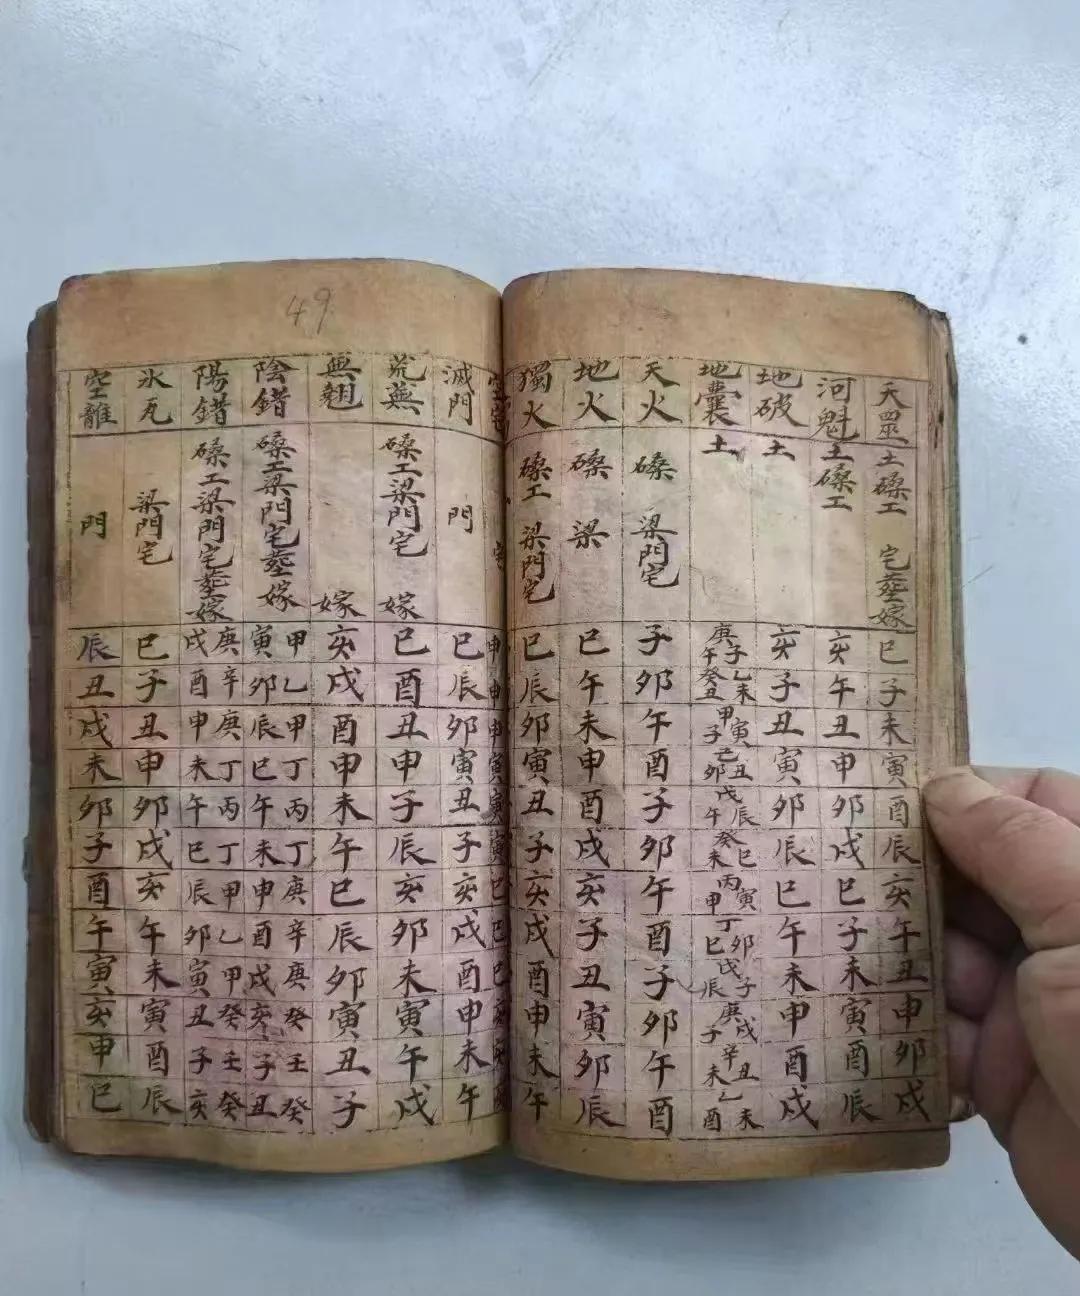 天罡 土磉工 宅塟嫁 巳子未寅酉辰亥午丑申卯戌
河魁 土磉工 亥午丑申卯戌巳子未寅酉辰
地破 土 亥子丑寅卯辰巳午未申酉戌
地囊 土 庚子午 乙未癸丑 甲寅子 己丑卯 戊辰午 癸巳未 丙寅申 丁卯巳 戊子辰 庚戌子 辛丑未 乙未酉
天火 磉 梁門宅 子卯午酉子卯午酉子卯午酉
地火 磉 梁 巳午未申酉戌亥子丑寅卯辰
獨火 磉工 梁門宅 巳辰卯寅丑子亥戌酉申未午
49
空宅 宅 申申申寅寅寅巳巳巳亥亥亥
滅門 門 巳辰卯寅丑子亥戌酉申未午
荒蕪 磉工梁門宅 嫁 巳酉丑申子辰亥卯未寅午戌
無翹 嫁 亥戌酉申未午巳辰卯寅丑子
陰錯 磉工梁門宅塟嫁 甲寅 乙卯 甲辰 丁巳 丙午 丁未 庚申 辛酉 庚戌 癸亥 壬子 癸丑
陽錯 磉工梁門宅塟嫁 庚戌 辛酉 庚申 丁未 丙午 丁巳 甲辰 乙卯 甲寅 癸丑 壬子 癸亥
氷瓦 梁門宅 巳子丑申卯戌亥午未寅酉辰
空離 門 辰丑戌未卯子酉午寅亥申巳